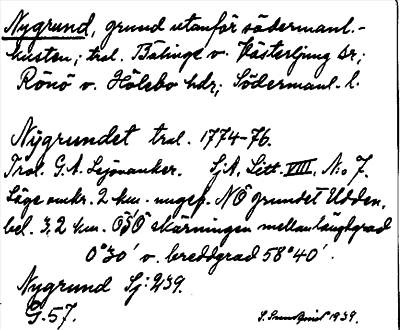 Nygrund, grund utanför södermanl.-
kusten; trol. Bälinge o. Västerljung sr;
Rönö o. Hölebo hdr; Södermanl. l.
Nygrundet trol. 1774-76.
Trol. G.A. Leijonanker. SjA. Litt. VIII. N:o 7.
Läge omkr. 2 km. ungef. NO grundet Udden,
bel. 3,2 km. OSO skärningen mellan längdgrad
0°30' o. breddgrad 58°40'.
Nygrund Sj: 239.
G. 57.
1939.